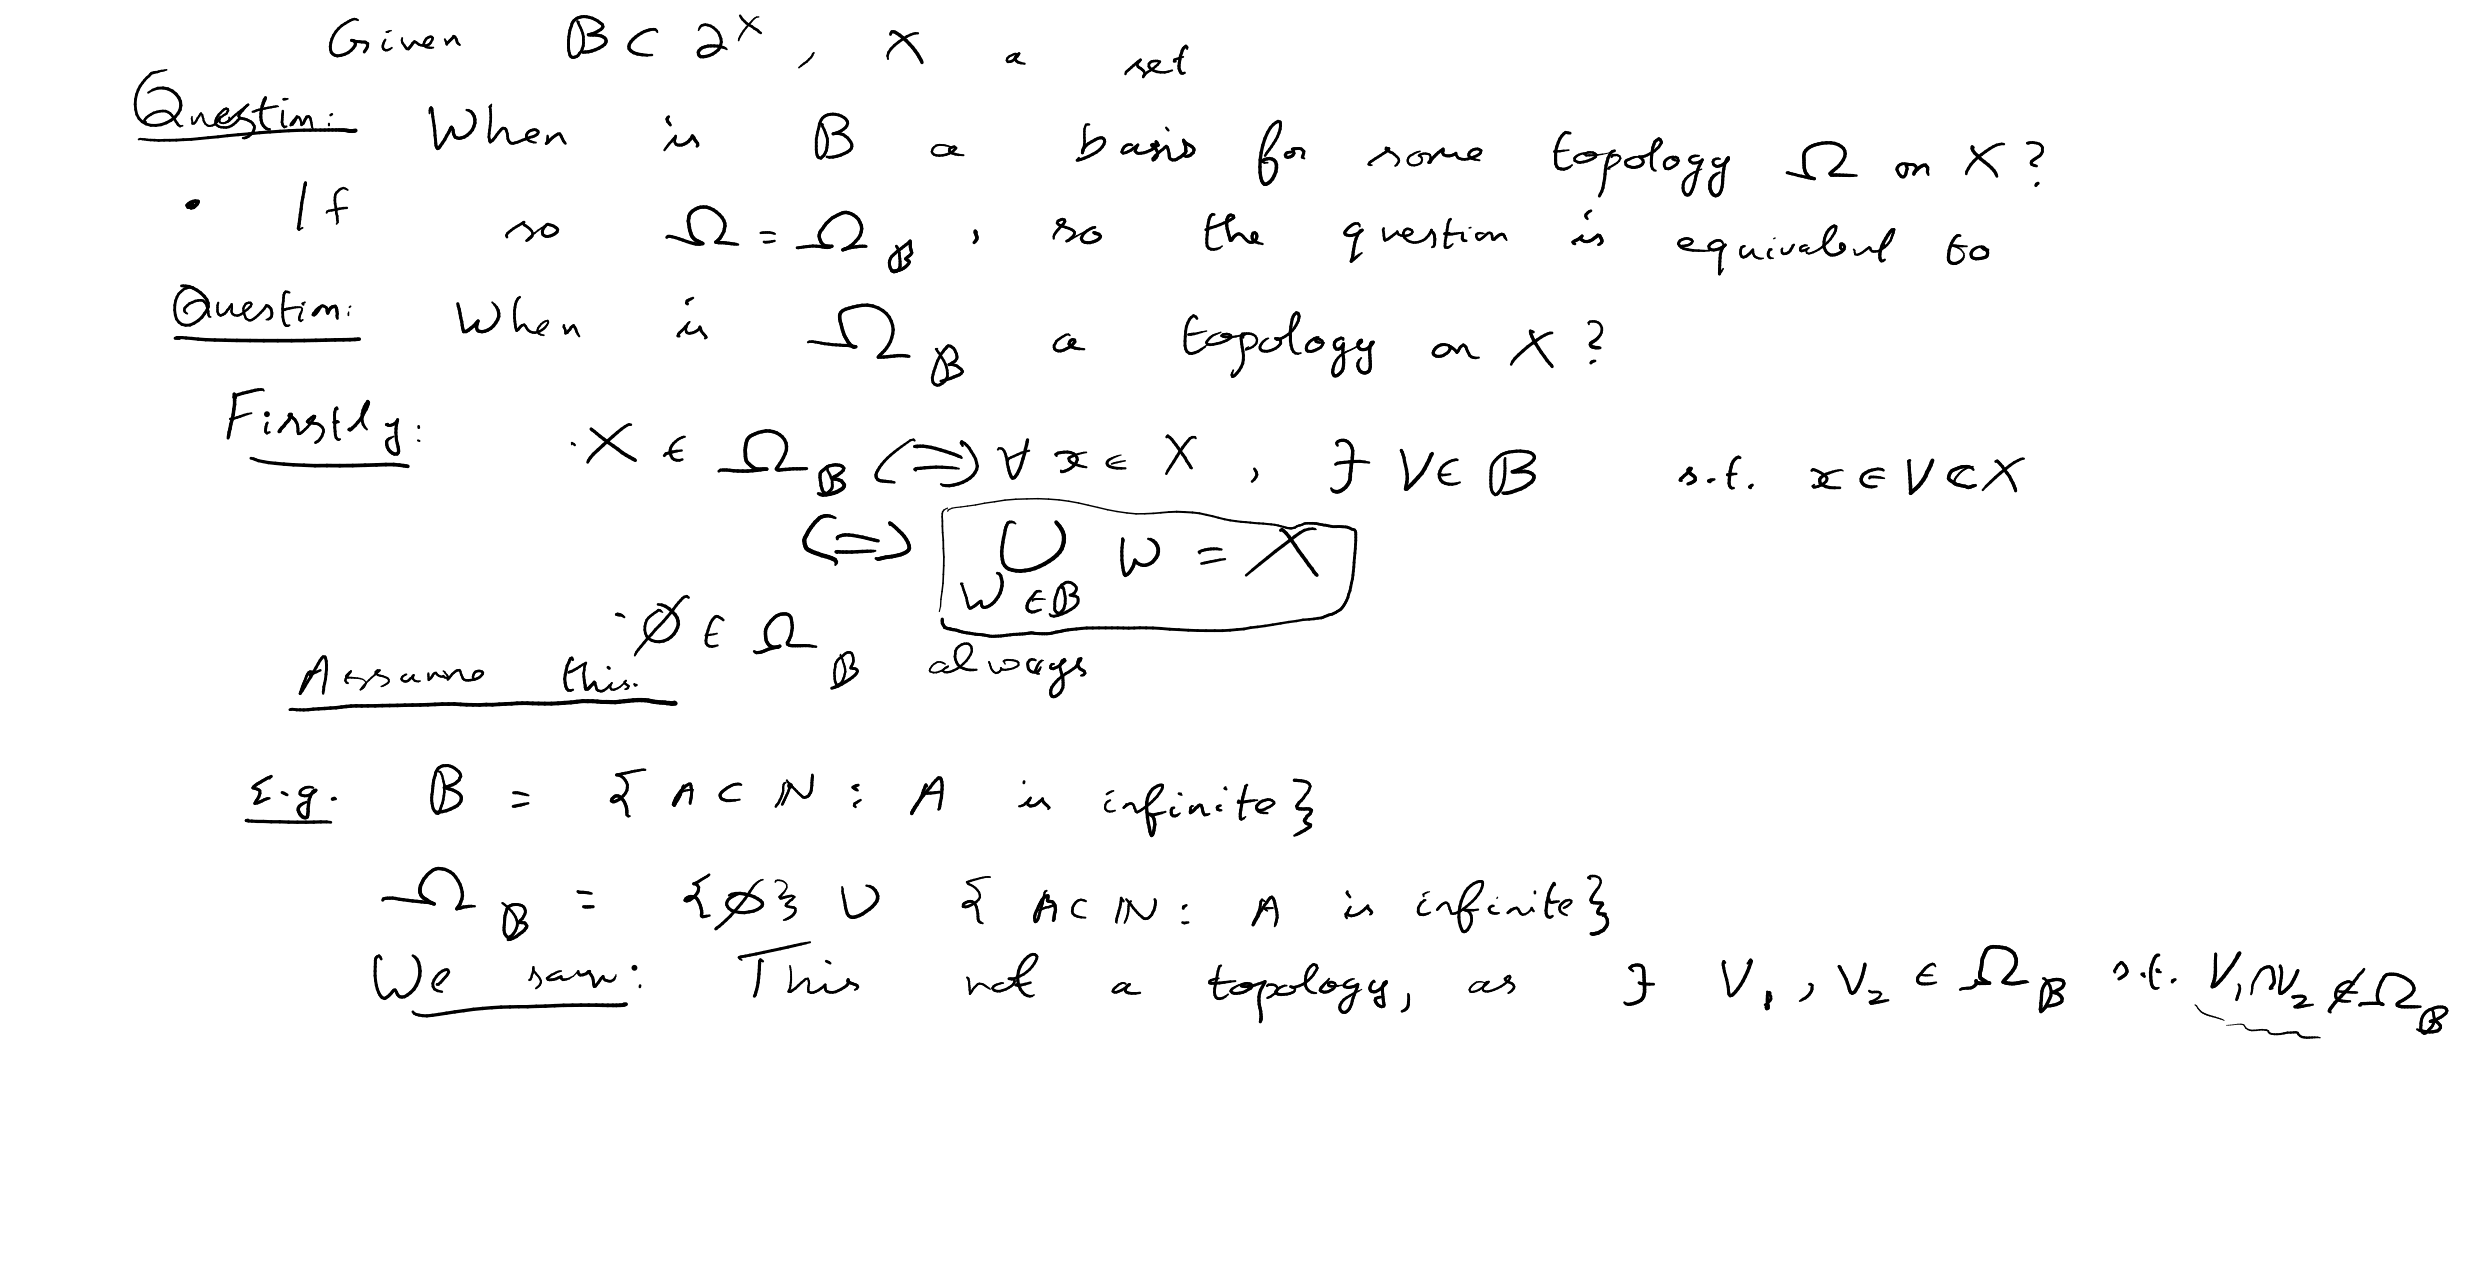 Given 𝔹 ⊂ 2^X, X a set
Question: When is 𝔹 a basis for some topology Ω on X?
• If so Ω = Ω_𝔹, so the question is equivalent to
Question: When is Ω_𝔹 a topology on X?
Firstly: · X ∈ Ω_𝔹 (=) ∀ x ∈ X, ∃ V ∈ 𝔹 s.t. x ∈ V ⊂ X
(=) ∪_{W ∈ 𝔹} W = X
· ∅ ∈ Ω_𝔹 always
Assume this.
E.g. 𝔹 = {A ⊂ ℕ : A is infinite}
Ω_𝔹 = {∅} ∪ {A ⊂ ℕ : A is infinite}
We saw: This not a topology, as ∃ V₁, V₂ ∈ Ω_𝔹 s.t. V₁∩V₂ ∉ Ω_𝔹